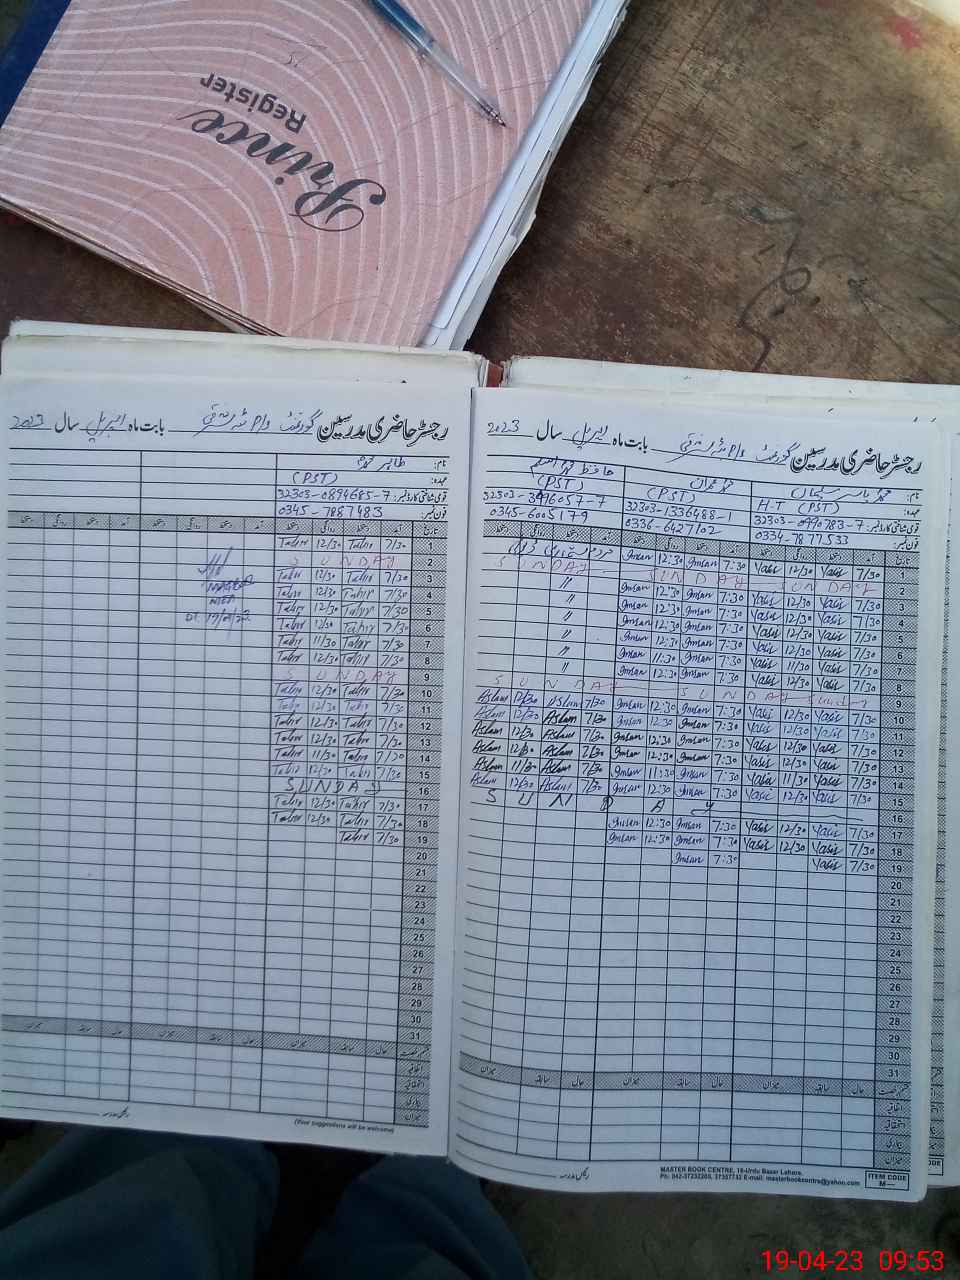 Prince
Register
رجسٹر حاضری مدرسین گورنمنٹ بابت ماہ اپریل سال 2023
نام: محمد یاسر سلیمان محمد عمران حافظ محمد اسلم
عہدہ: H-T (PST) (PST) (PST)
قومی شناختی کارڈ نمبر: 32303-0990783-7 32303-1336488-1 32303-3996057-7
فون نمبر: 0334-7877533 0336-6427102 0345-6005179
تاریخ آمد دستخط روانگی دستخط آمد دستخط روانگی دستخط آمد دستخط روانگی دستخط
1 7/30 Yasir 12/30 Yasir 7:30 Imran 12:30 Imran
2 SUNDAY SUNDAY SUNDAY
3 7/30 Yasir 12/30 Yasir 7:30 Imran 12:30 Imran "
4 7/30 Yasir 12/30 Yasir 7:30 Imran 12:30 Imran "
5 7/30 Yasir 12/30 Yasir 7:30 Imran 12:30 Imran "
6 7/30 Yasir 12/30 Yasir 7:30 Imran 12:30 Imran "
7 7/30 Yasir 11/30 Yasir 7:30 Imran 11:30 Imran "
8 7/30 Yasir 12/30 Yasir 7:30 Imran 12:30 Imran "
9 Sunday SUNDAY SUNDAY
10 7/30 Yasir 12/30 Yasir 7:30 Imran 12:30 Imran 7/30 Aslam 12/30 Aslam
11 7/30 Yasir 12/30 Yasir 7:30 Imran 12:30 Imran 7/30 Aslam 12/30 Aslam
12 7/30 Yasir 12/30 Yasir 7:30 Imran 12:30 Imran 7/30 Aslam 12/30 Aslam
13 7/30 Yasir 12/30 Yasir 7:30 Imran 12:30 Imran 7/30 Aslam 12/30 Aslam
14 7/30 Yasir 11/30 Yasir 7:30 Imran 11:30 Imran 7/30 Aslam 11/30 Aslam
15 7/30 Yasir 12/30 Yasir 7:30 Imran 12:30 Imran 7/30 Aslam 12/30 Aslam
16 SUNDAY
17 7/30 Yasir 12/30 Yasir 7:30 Imran 12:30 Imran
18 7/30 Yasir 12/30 Yasir 7:30 Imran 12:30 Imran
19 7/30 Yasir 7:30 Imran
20
21
22
23
24
25
26
27
28
29
30
31
حال سابقہ میزان حال سابقہ میزان حال سابقہ میزان
اتفاقیہ
استحقاقیہ
بیماری
میزان
رئیس مدرسہ
MASTER BOOK CENTRE, 16-Urdu Bazar Lahore.
Ph: 042-37232265, 37357742 E-mail: masterbookcentre@yahoo.com
ITEM CODE
M—
رجسٹر حاضری مدرسین گورنمنٹ بابت ماہ اپریل سال 2023
نام: طاہر محمود
عہدہ: (PST)
قومی شناختی کارڈ نمبر: 32303-0894685-7
فون نمبر: 0345-7887483
تاریخ آمد دستخط روانگی دستخط آمد دستخط روانگی دستخط آمد دستخط روانگی دستخط
1 7/30 Tahir 12/30 Tahir
2 SUNDAY
3 7/30 Tahir 12/30 Tahir
4 7/30 Tahir 12/30 Tahir
5 7/30 Tahir 12/30 Tahir
6 7/30 Tahir 12/30 Tahir
7 7/30 Tahir 11/30 Tahir
8 7/30 Tahir 12/30 Tahir
9 SUNDAY
10 7/30 Tahir 12/30 Tahir
11 7/30 Tahir 12/30 Tahir
12 7/30 Tahir 12/30 Tahir
13 7/30 Tahir 12/30 Tahir
14 7/30 Tahir 11/30 Tahir
15 7/30 Tahir 12/30 Tahir
16 SUNDAY
17 7/30 Tahir 12/30 Tahir
18 7/30 Tahir 12/30 Tahir
19 7/30 Tahir
20
21
22
23
24
25
26
27
28
29
30
31
حال سابقہ میزان حال سابقہ میزان حال سابقہ میزان
اتفاقیہ
استحقاقیہ
بیماری
میزان
رئیس مدرسہ
(Your suggestions will be welcome)
19-04-23 09:53